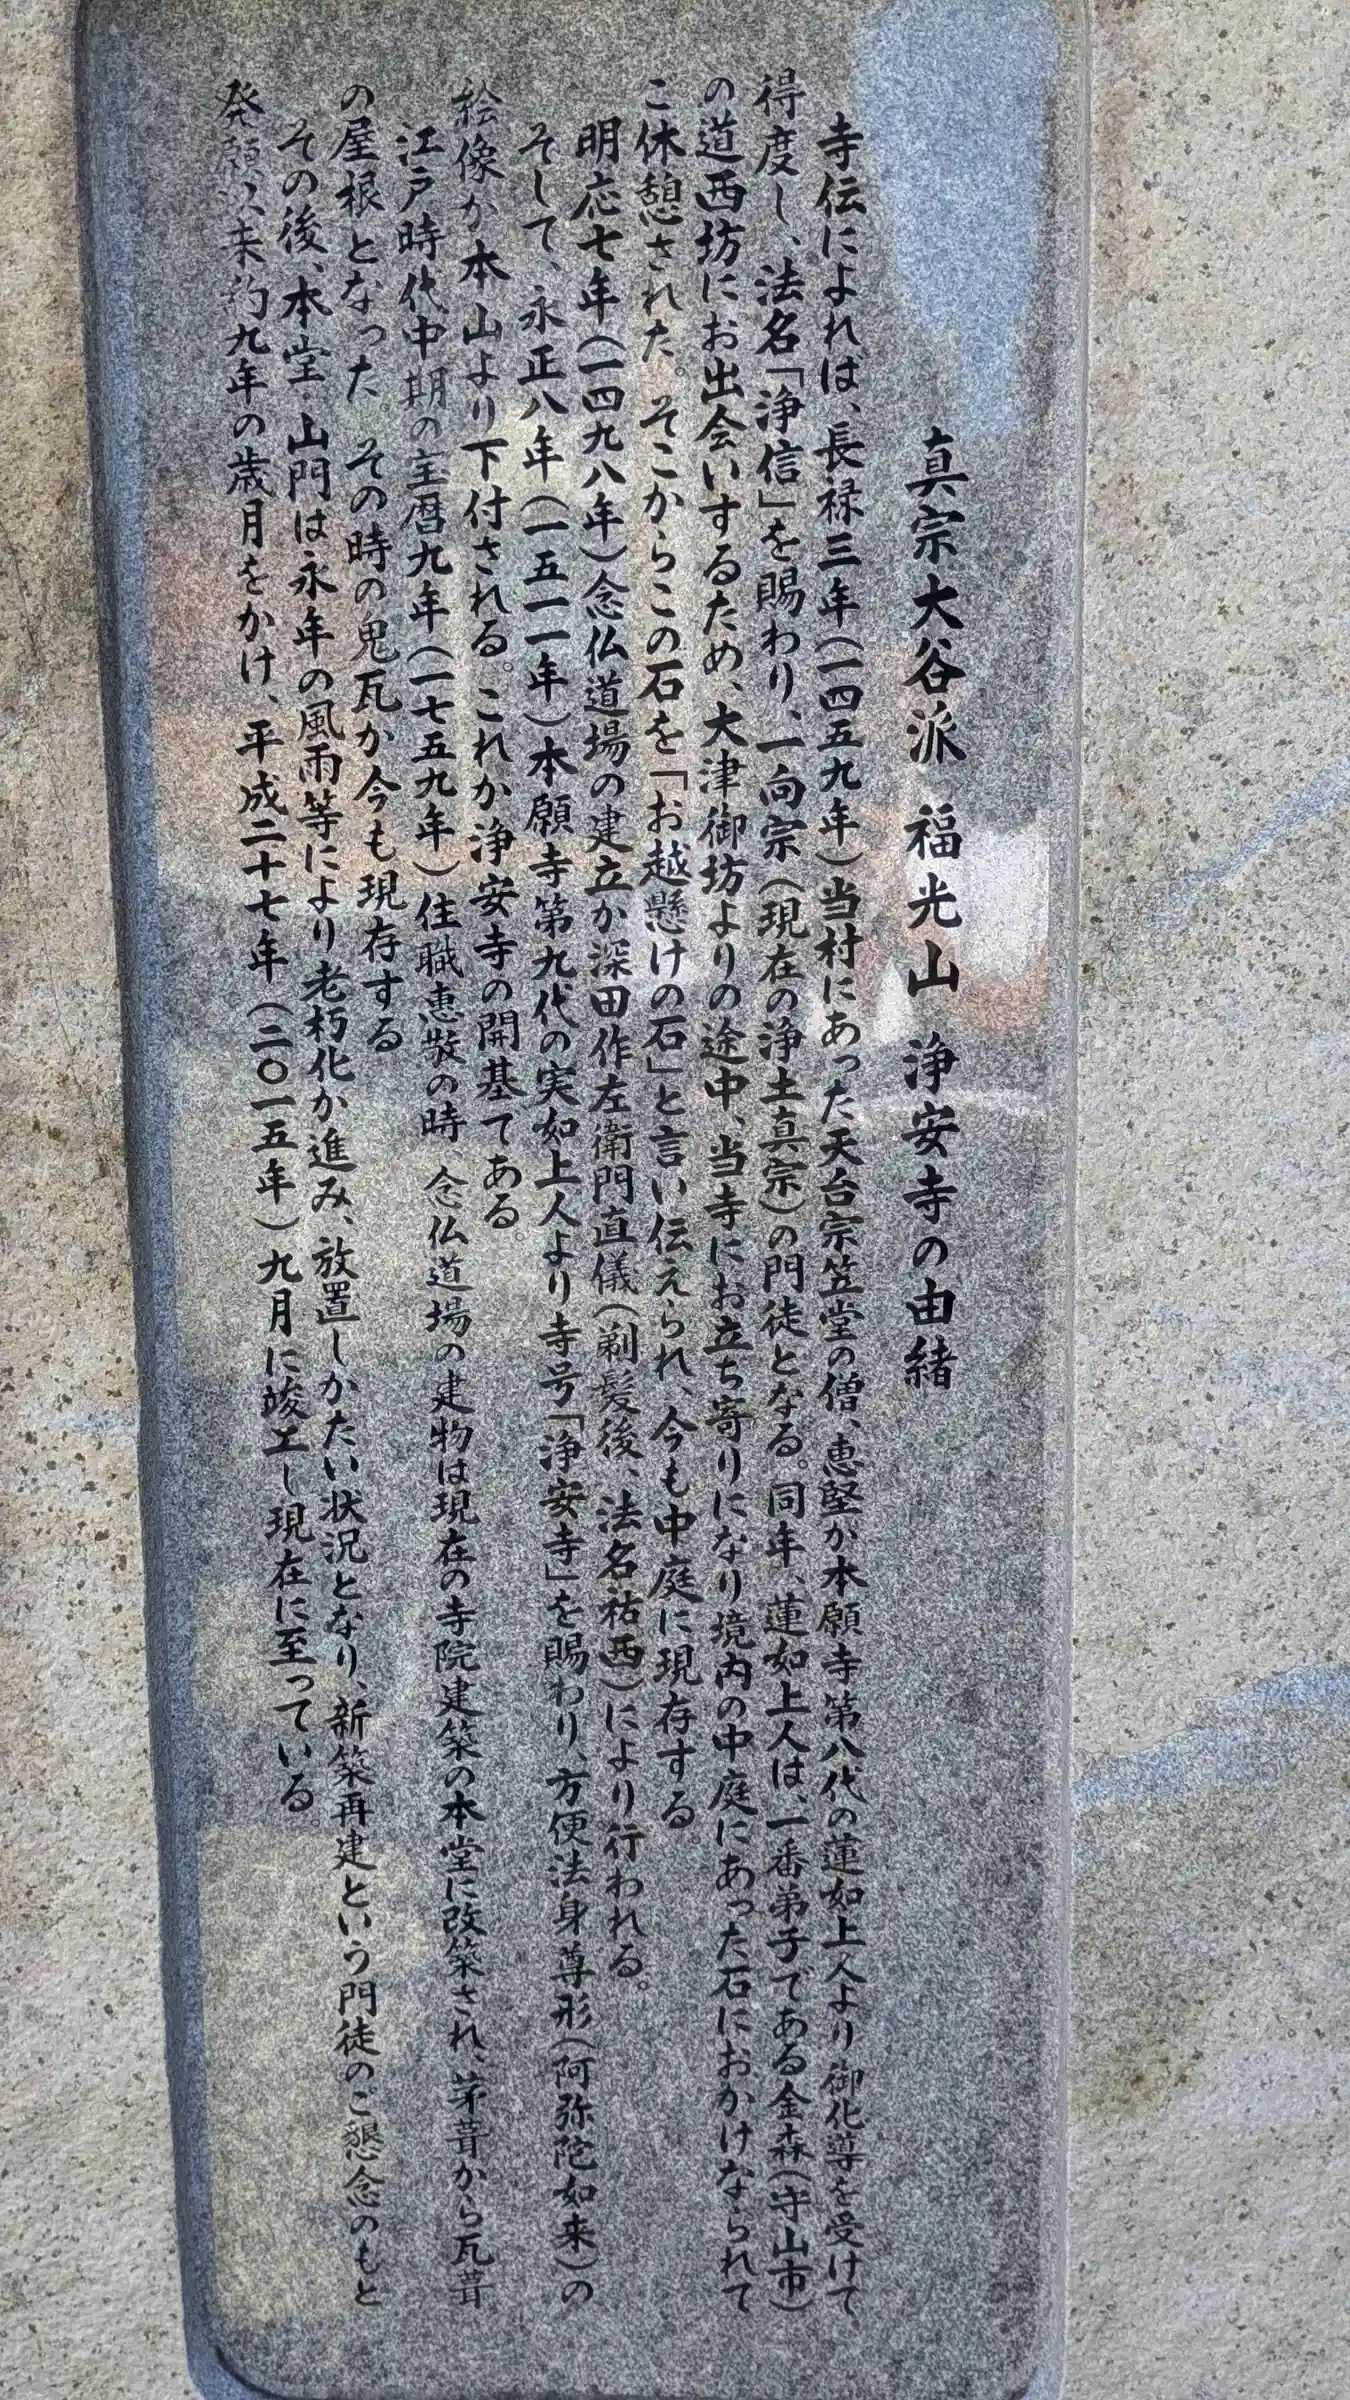 真宗大谷派 福光山 浄安寺の由緒
寺伝によれは、長禄三年(一四五九年)当村にあった天台宗笠堂の僧、恵堅か本願寺第八代の蓮如上人より御化導を受けて
得度し、法名「浄信」を賜わり、一向宗(現在の浄土真宗)の門徒となる。同年、蓮如上人は、一番弟子である金森(守山市)
の道西坊にお出会いするため、大津御坊よりの途中、当寺にお立ち寄りになり境内の中庭にあった石におかけなられて
こ休憩された。そこからこの石を「お越懸けの石」と言い伝えられ、今も中庭に現存する。
明応七年(一四九八年)念仏道場の建立か深田作左衛門直儀(剃髪後、法名祐西)により行われる。
そして、永正八年(一五一一年)本願寺第九代の実如上人より寺号「浄安寺」を賜わり、方便法身尊形(阿弥陀如来)の
絵像か本山より下付される。これか浄安寺の開基てある。
江戸時代中期の宝暦九年(一七五九年)住職恵敬の時、念仏道場の建物は現在の寺院建築の本堂に改築され、茅葺から瓦葺
の屋根となった。その時の鬼瓦か今も現存する
その後、本堂・山門は永年の風雨等により老朽化か進み、放置しかたい状況となり、新築再建という門徒のご懇念のもと
発願以来約九年の歳月をかけ、平成二十七年(二〇一五年)九月に竣工し現在に至っている。